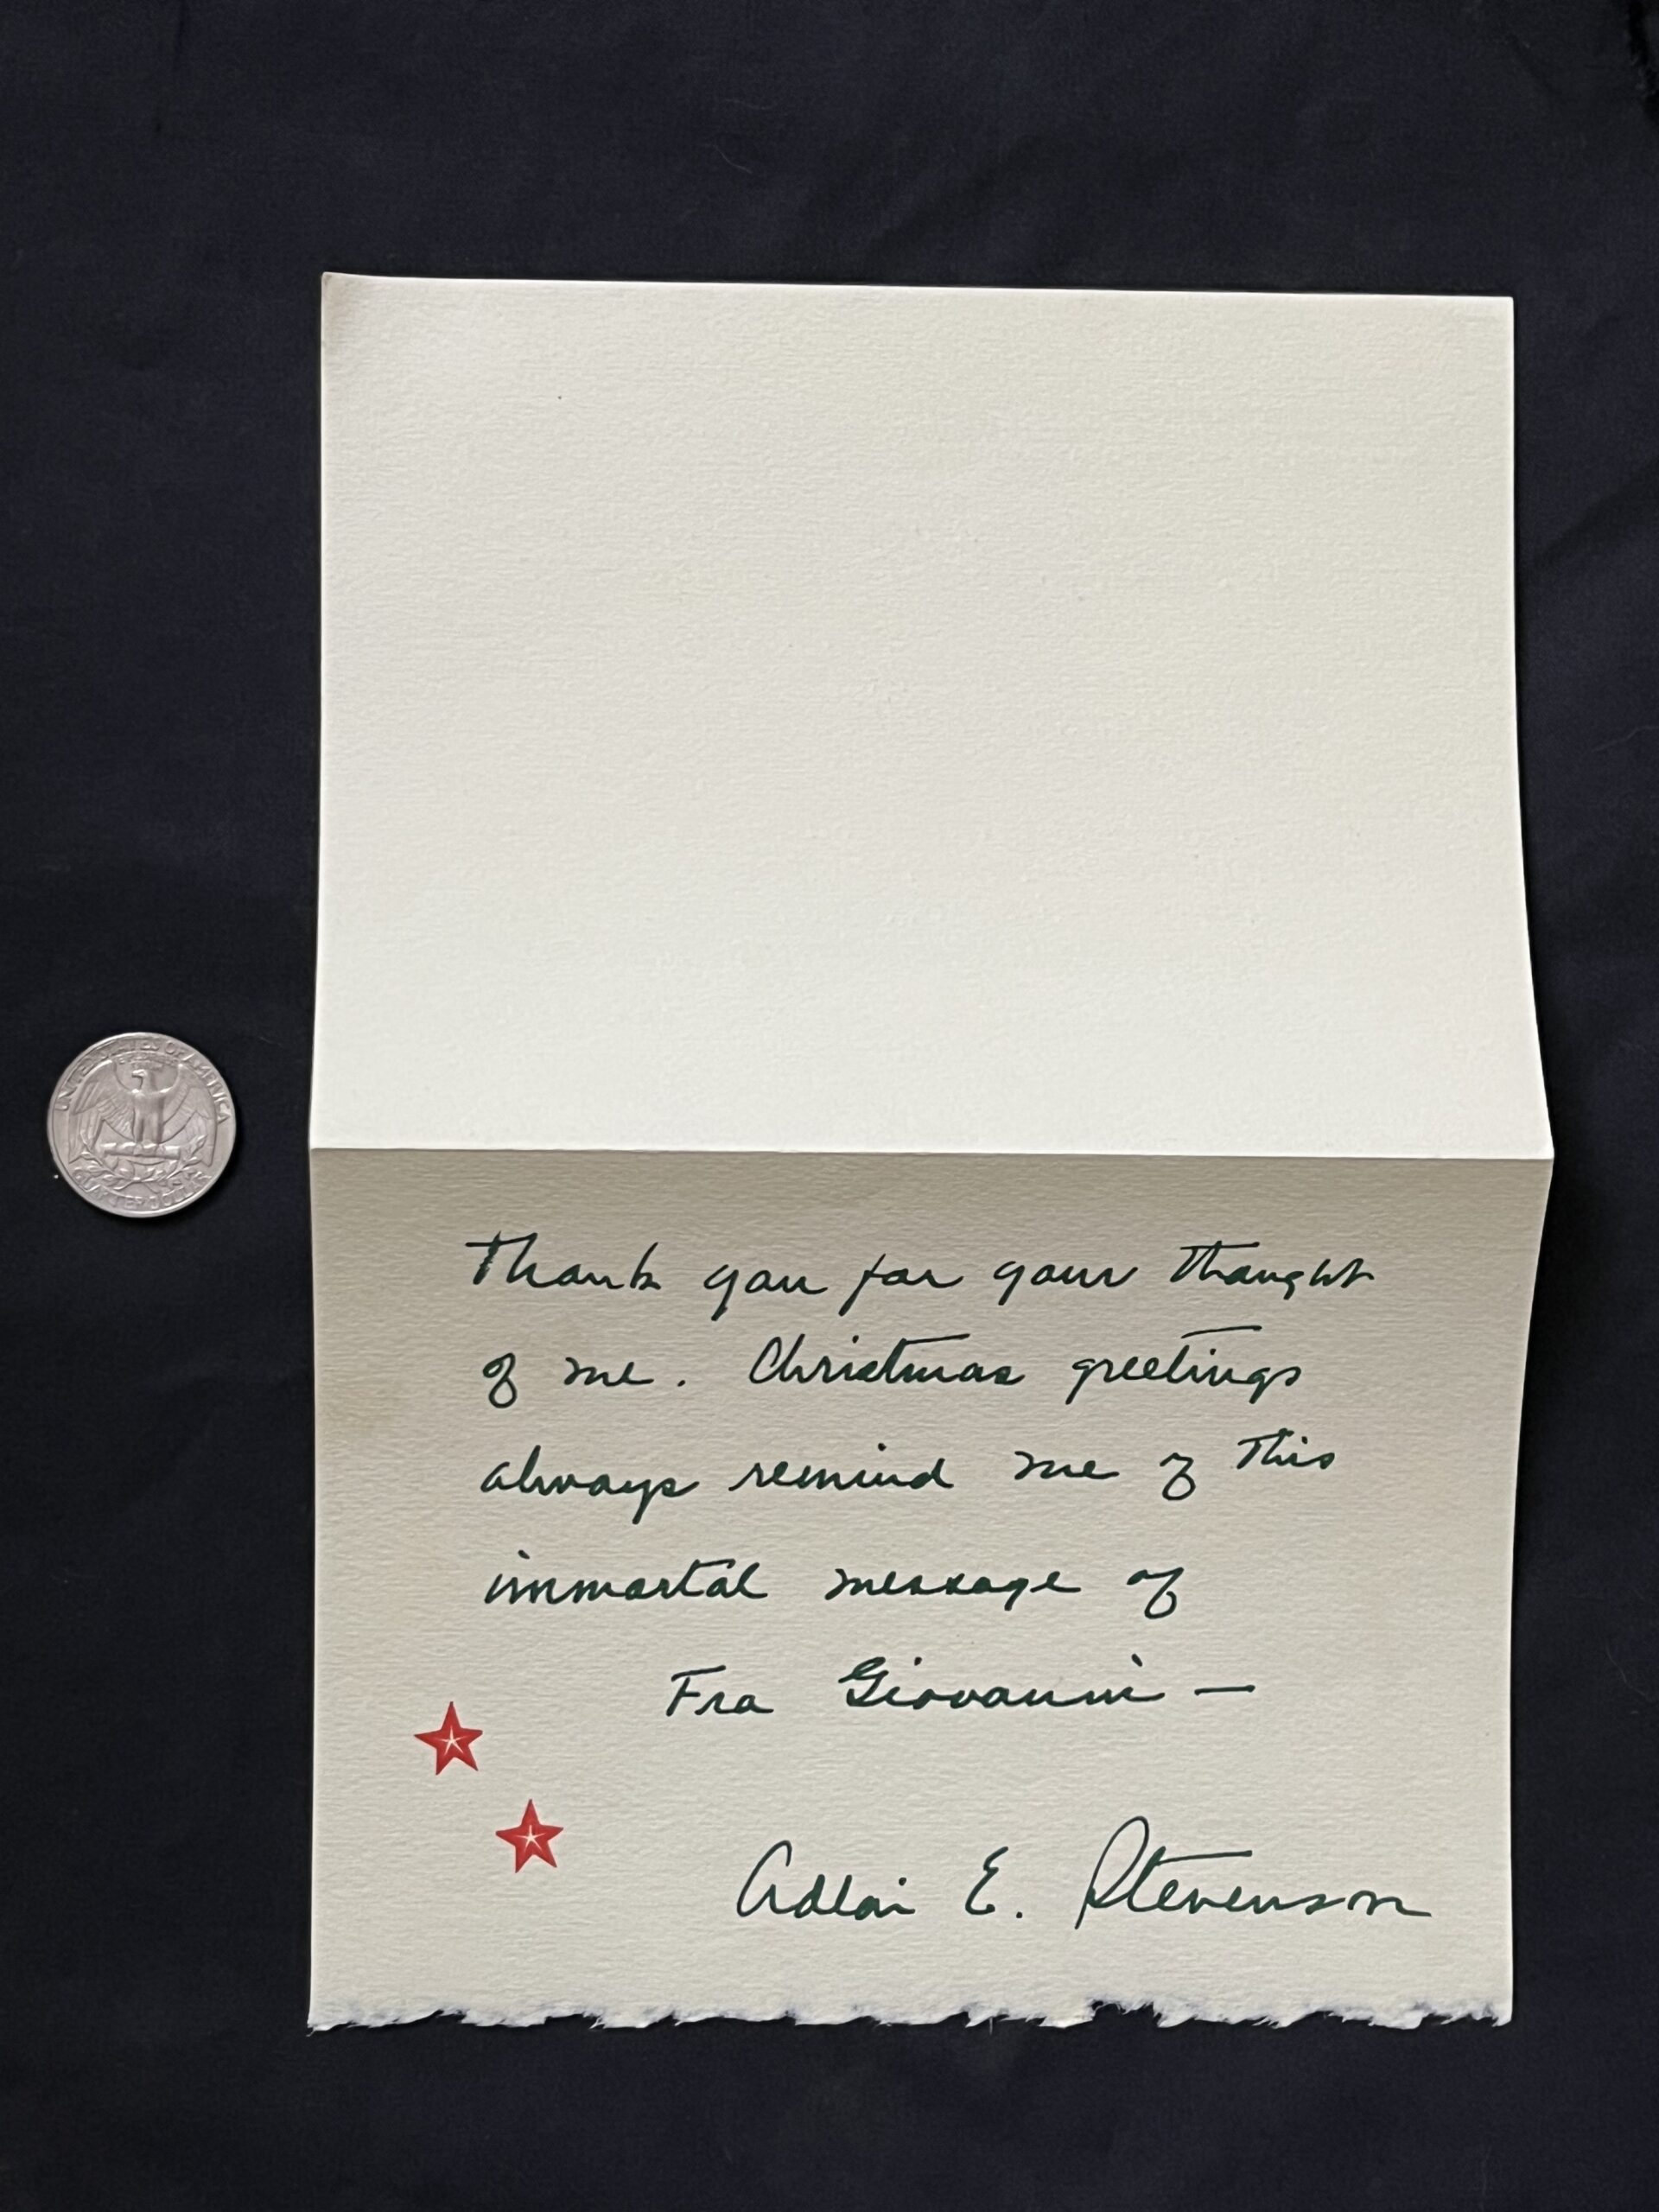 UNITED STATES OF AMERICA
QUARTER DOLLAR
Thank you for your thought
of me. Christmas greetings
always remind me of this
immortal message of
Fra Giovanni —
Adlai E. Stevenson